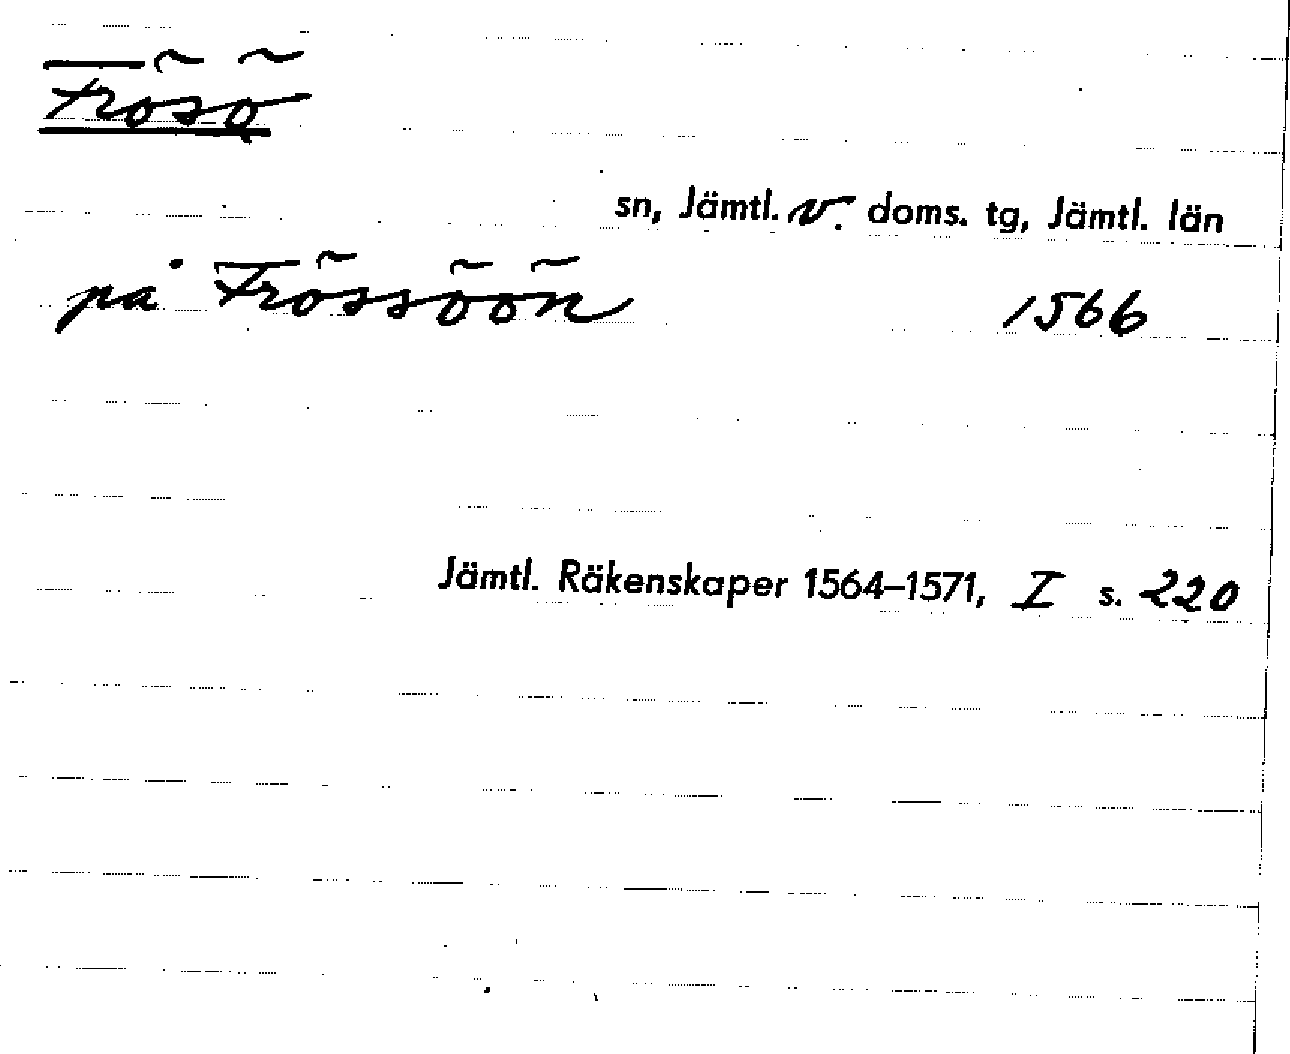 Frösö
sn, Jämtl. v. doms. tg, Jämtl. län
på Frössöön 1566
Jämtl. Räkenskaper 1564–1571, I s. 220